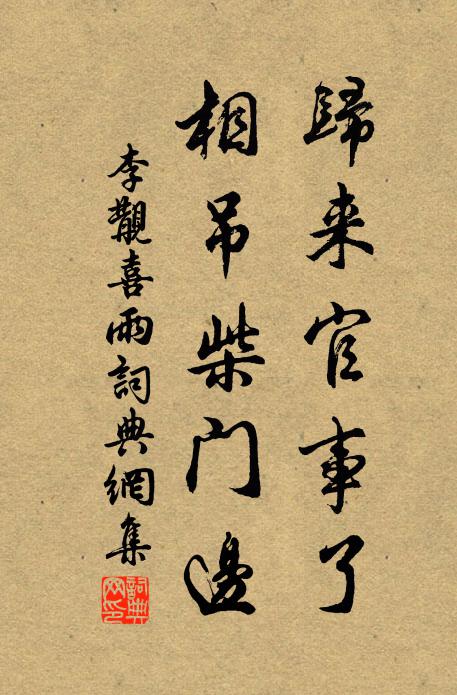 歸来官事了
相吊柴門邊
李觀喜雨詞典網集
詞典網印